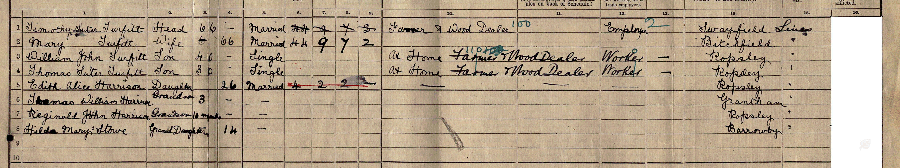 1 Timothy Tutty Turfitt Head 66 - Married 44 9 7 2 Farmer & Wood Dealer 100 Employer 2 Swayfield Lincs
2 Mary Turfitt Wife - 66 Married 44 9 7 2 Bitchfield "
3 William John Turfitt Son 40 - Single At Home Farmer & Wood Dealer Worker - Ropsley "
4 Thomas Turfitt Son 30 Single At Home Farmer & Wood Dealer Worker - Ropsley "
5 Edith Alice Harrison Daughter 26 Married 4 2 2 - Ropsley "
6 Thomas William Harrison Grandson 3 - - Grantham "
7 Reginald John Harrison Grandson 10 months - - Ropsley "
8 Hilda Mary Stowe Grand Daughter 14 - Barrowby "
9
10